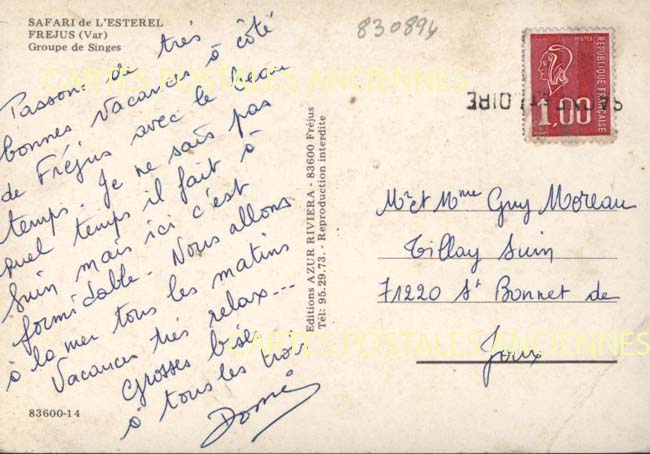 SAFARI de L'ESTEREL
FREJUS (Var)
Groupe de Singes
Passons de très
bonnes vacances à côté
de Fréjus avec le beau
temps. Je ne sais pas
quel temps il fait à
Suin mais ici c'est
formidable. Nous allons
à la mer tous les matins
Vacances très relax...
Grosses bises
à tous les trois
83600-14
Editions AZUR RIVIERA - 83600 Fréjus
Tél: 95.29.73. - Reproduction interdite
830894
POSTES
REPUBLIQUE FRANÇAISE
1,00
Mr et Mme Guy Moreau
Tillay Suin
71220 St Bonnet de
Joux
CARTES POSTALES ANCIENNES
CARTES POSTALES ANCIENNES